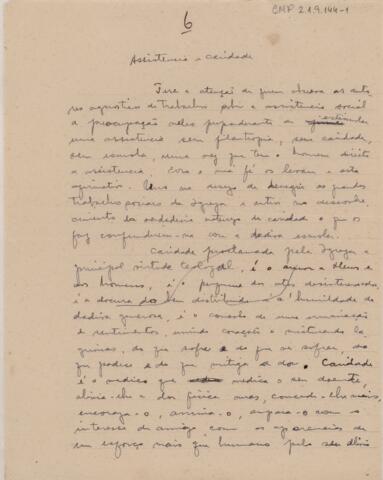 6
CMP 2.1.9.144-1
Assistencia e caridade
Fere a atenção de quem observa os auto
res agnosticos de trabalhos sobre a assistencia social
a preocupação nelles preponderante de
uma assistencia sem filantropia, sem caridade,
sem esmola, uma vez que tem o homem direito
a assistencia. Erro e má fé os levam a esta
no desejo de denegrir os grandes
trabalhos sociaes da Igreja e outros no desconhe
cimento da verdadeira de caridade o que os
faz confundirem-na com a dadiva esmola.
Caridade proclamada pela Igreja a
principal virtude teologal, é o amor a Deus e
aos homens, é o perfume dos atos desinteressados,
é a doçura do bem distribuido, é a humildade da
dadiva generosa, é o consolo de uma
e sentimentos, unindo corações e misturando la
grimas, do que sofre e do que ve sofrer, do
que padece e do que mitiga a dor. Caridade
é o medico que medica o seu doente,
alivia-lhe a dor física mas, concede-lhe mais,
encoraja-o, anima-o, ampara-o com o
interesse de amigo com as aparencias
de um esforço mais que humano pelo seu alivio